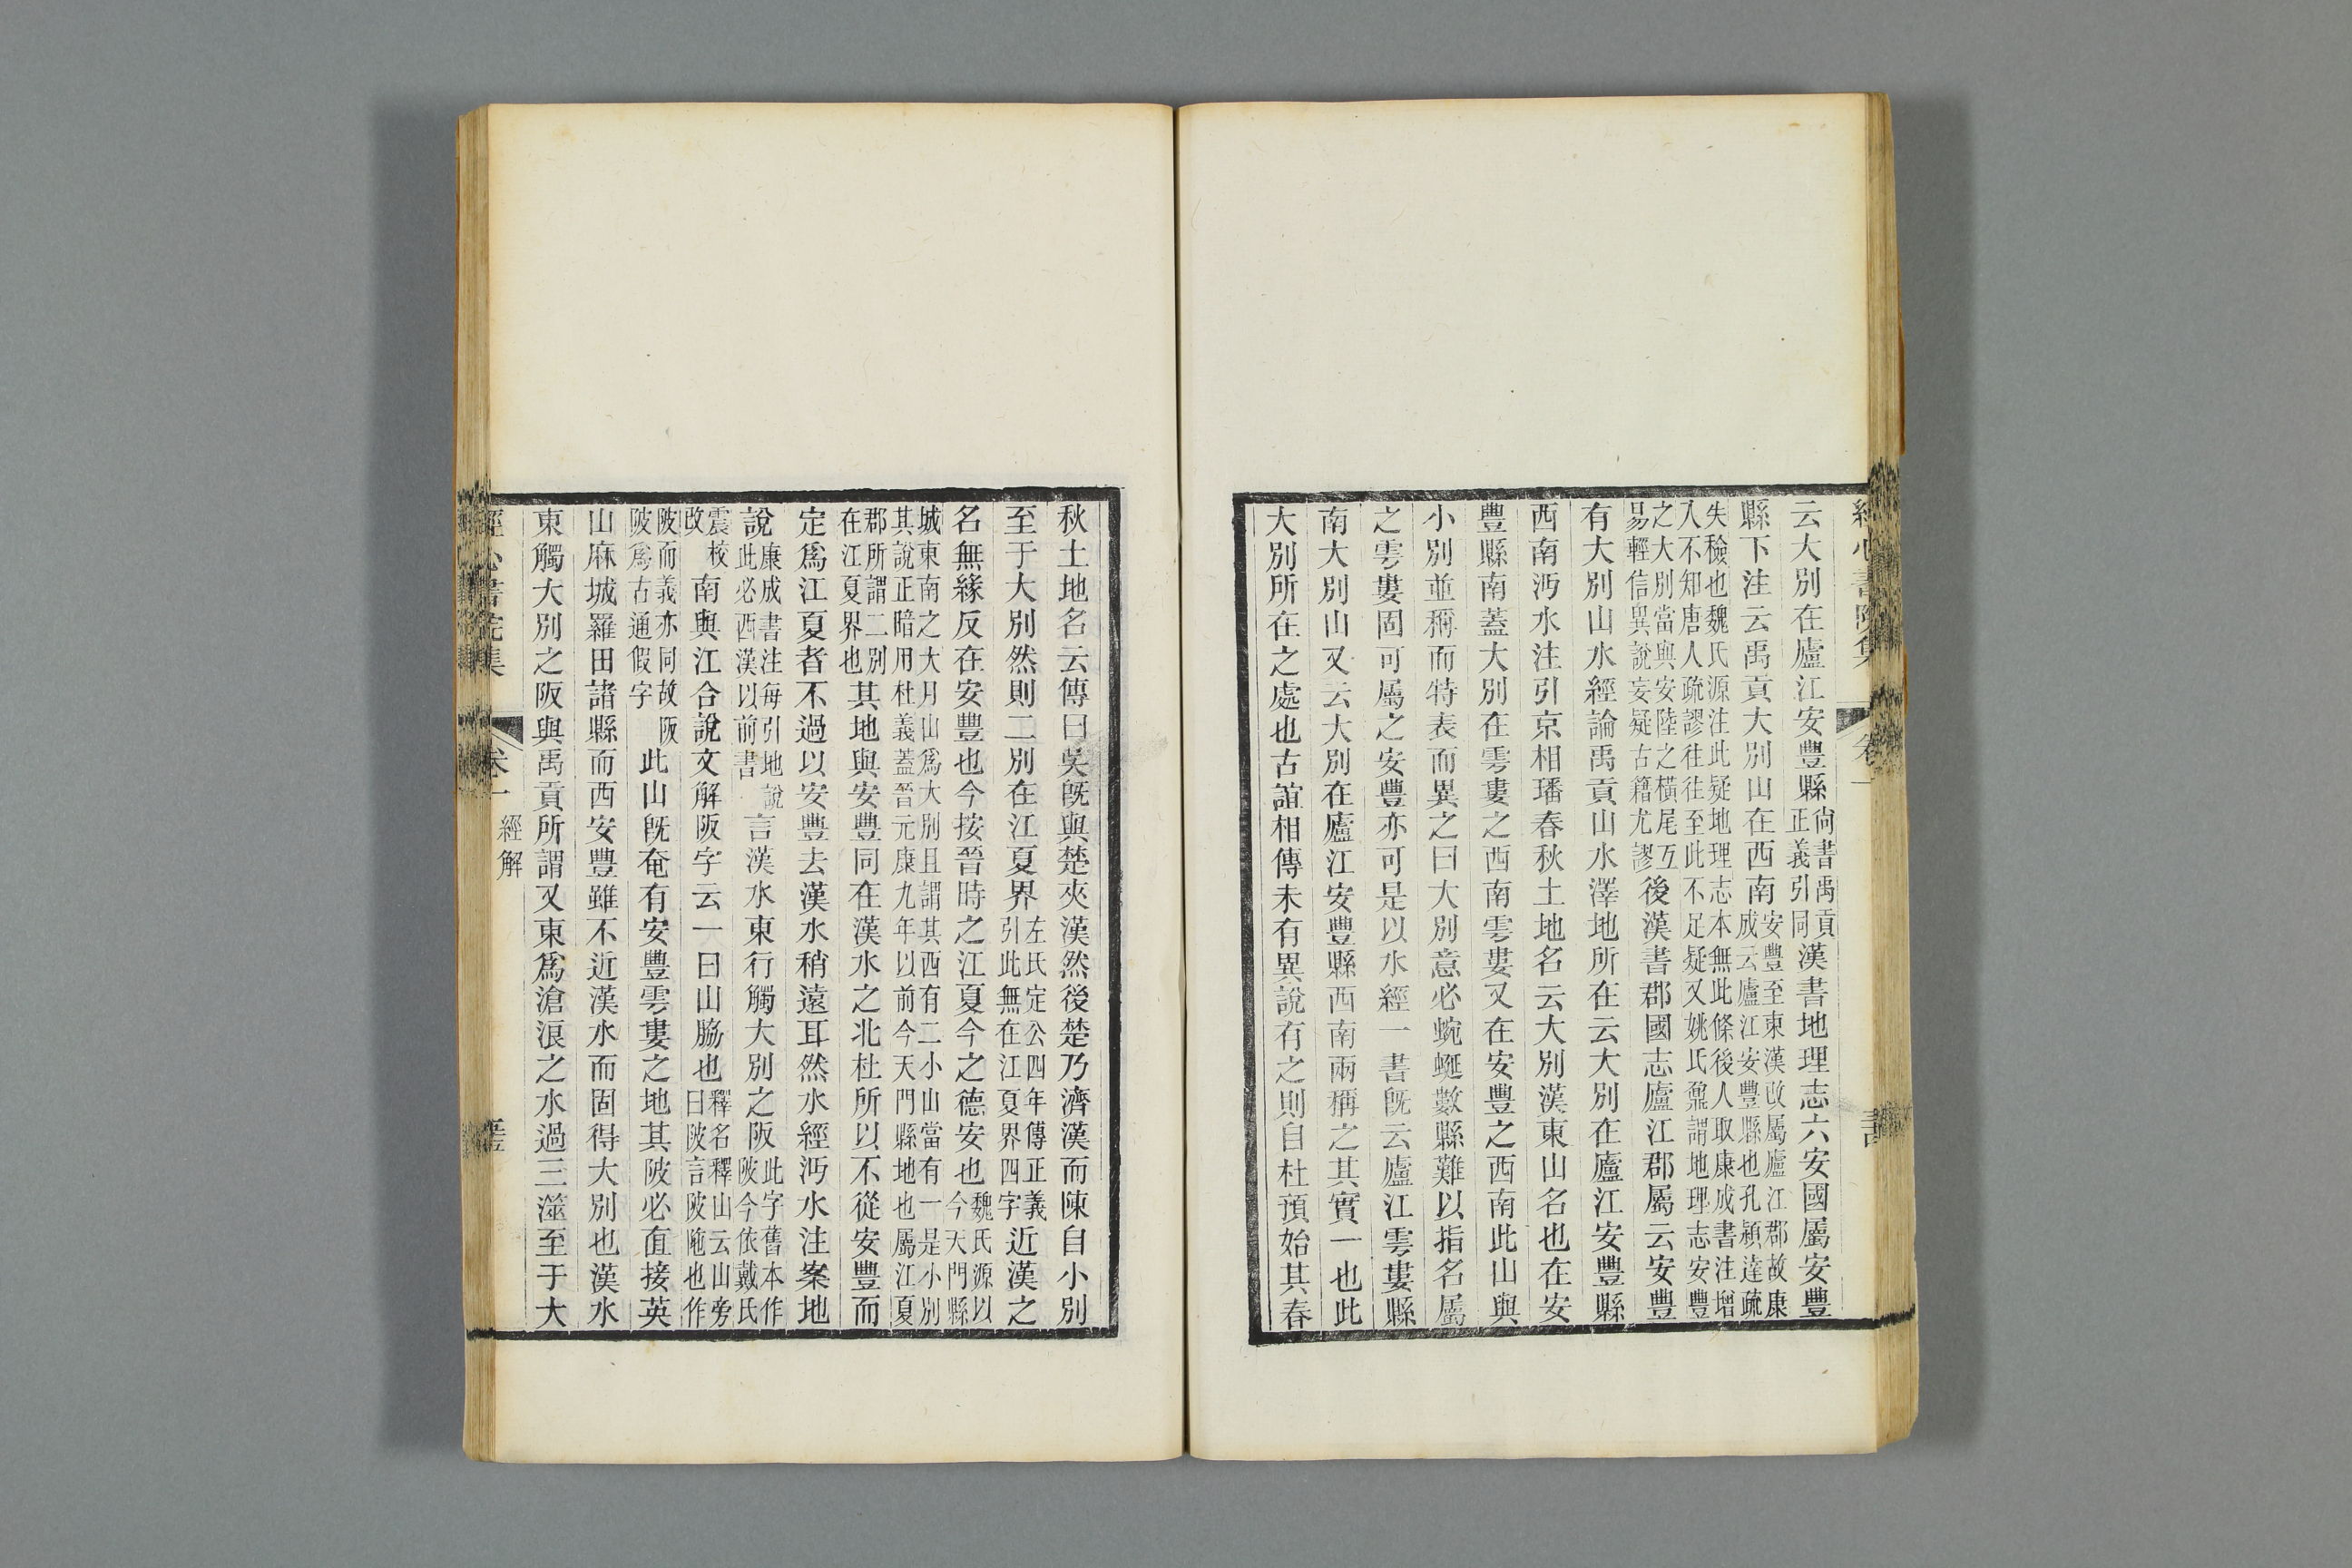 云大別在廬江安豐縣尚書禹貢正義引同漢書地理志六安國屬安豐
縣下注云禹貢大別山在西南安豐至東漢改屬廬江郡故康成云廬江安豐縣也孔穎達疏
失檢也魏氏源注此疑地理志本無此條後人取康成書注增入不知唐人疏謬往往至此不足疑又姚氏鼐謂地理志安豐
之大別當與安陸之橫尾互易輕信異說妄疑古籍尤謬後漢書郡國志廬江郡屬云安豐
有大別山水經論禹貢山水澤地所在云大別在廬江安豐縣
西南沔水注引京相璠春秋土地名云大別漢東山名也在安
豐縣南蓋大別在雩婁之西南雩婁又在安豐之西南此山與
小別並稱而特表而異之曰大別意必蜿蜒數縣難以指名屬
之雩婁固可屬之安豐亦可是以水經一書既云廬江雩婁縣
南大別山又云大別在廬江安豐縣西南兩稱之其實一也此
大別所在之處也古誼相傳未有異說有之則自杜預始其春
秋土地名云傳曰吳既與楚夾漢然後楚乃濟漢而陳自小別
至于大別然則二別在江夏界左氏定公四年傳正義引此無在江夏界四字近漢之
名無緣反在安豐也今按晉時之江夏今之德安也魏氏源以今天門縣
城東南之大月山為大別且謂其西有二小山當有一是小別其說正暗用杜義蓋晉元康九年以前今天門縣地也屬江夏
郡所謂二別在江夏界也其地與安豐同在漢水之北杜所以不從安豐而
定為江夏者不過以安豐去漢水稍遠耳然水經沔水注案地
說康成書注每引地說此必西漢以前書言漢水東行觸大別之阪此字舊本作陂今依戴氏
震校改南與江合說文解阪字云一曰山脇也釋名釋山云山旁曰陂言陂陁也作
陂而義亦同故阪陂為古通假字此山既奄有安豐雩婁之地其陂必直接英
山麻城羅田諸縣而西安豐雖不近漢水而固得大別也漢水
東觸大別之阪與禹貢所謂又東為滄浪之水過三澨至于大
卷一
經解